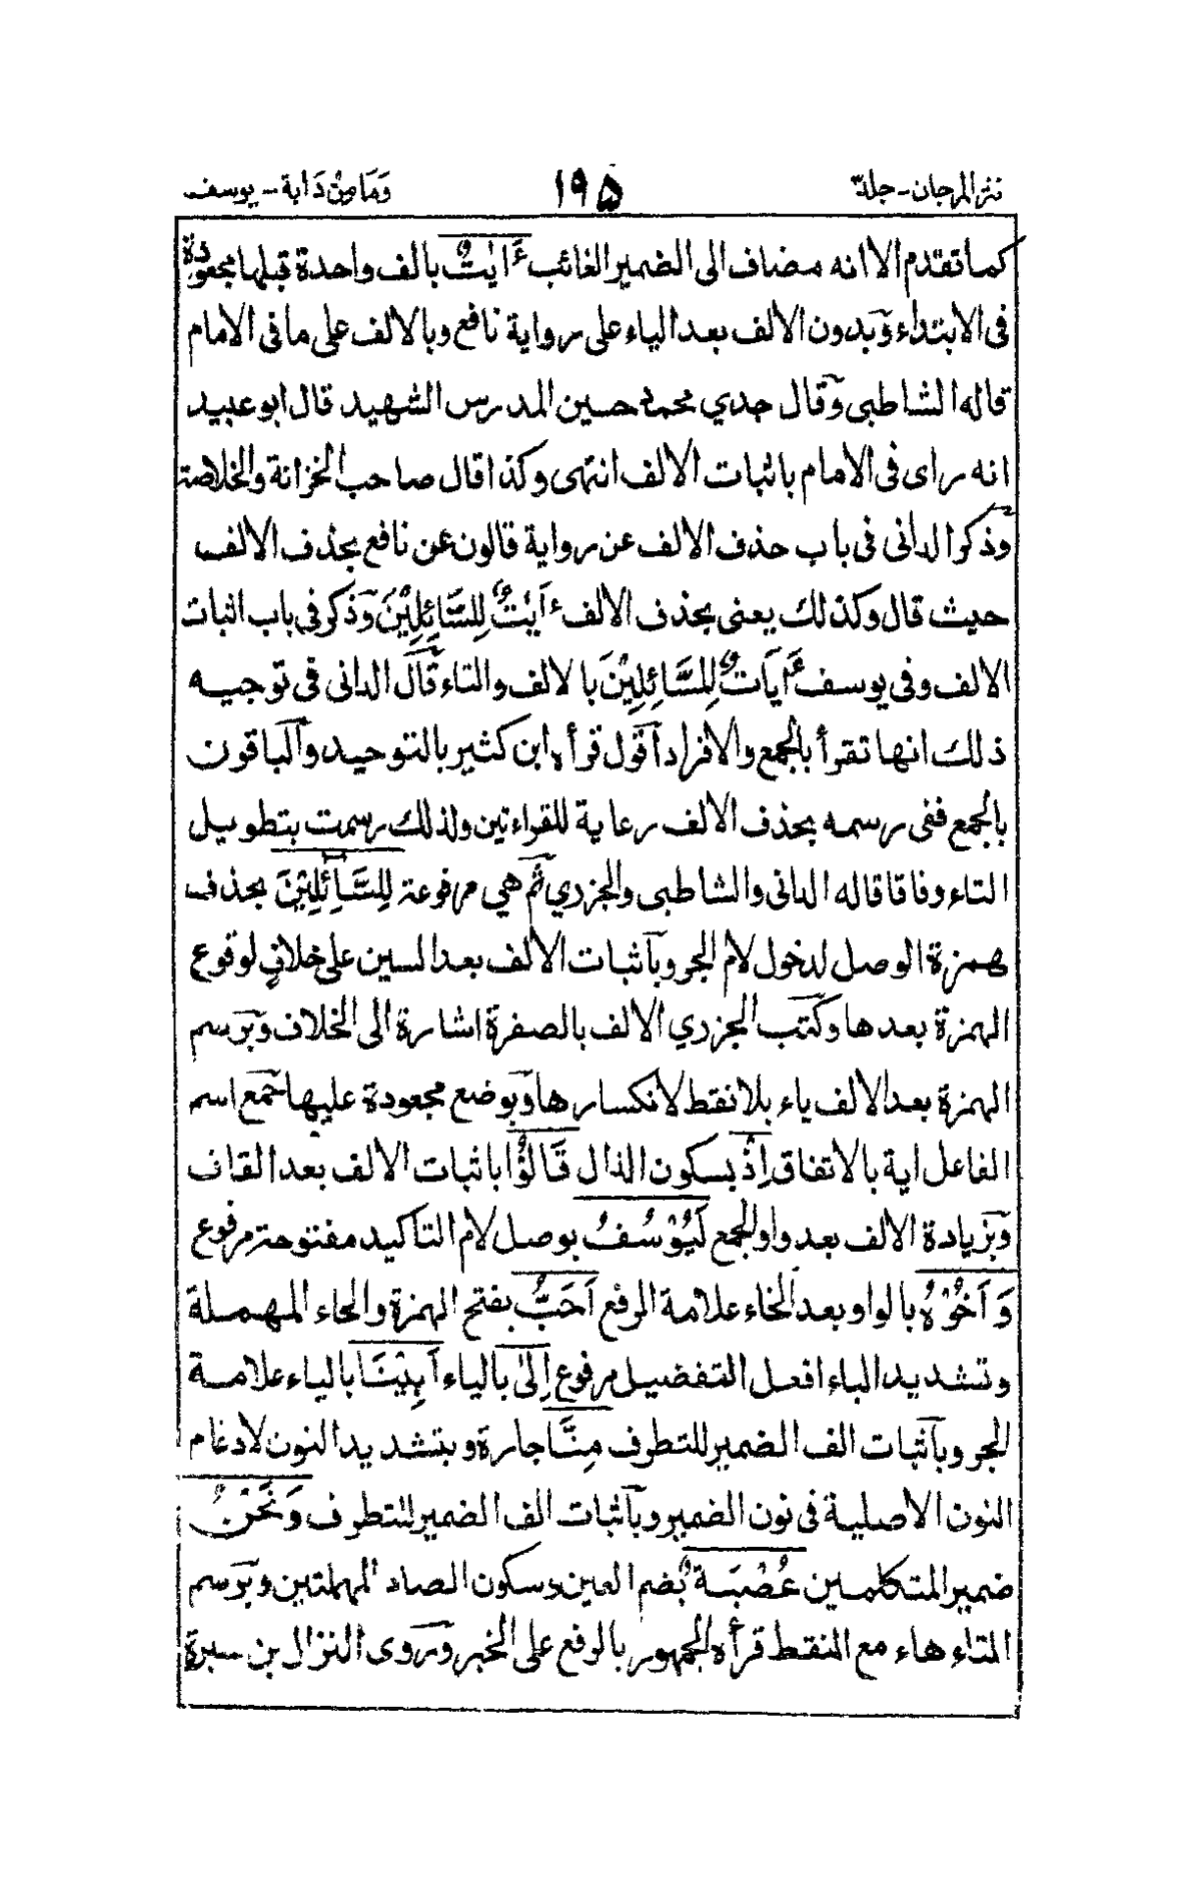 نثر المرجان - جلد ٣ ١٩٥ وَمَا مِنْ دَابة - يوسف
كما تقدم الا انه مضاف الى الضمير الغائب ءَايٰتٌ بالف واحدة قبلها مجعودة
فى الابتداء وبدون الالف بعد الياء على رواية نافع وبالالف على ما فى الامام
قاله الشاطبى وقال جدي محمد حسين المدرس الشهيد قال ابو عبيد
انه راى فى الامام باثبات الالف انتهى وكذا قال صاحب الخزانة والخلاصة
وذكر الدانى فى باب حذف الالف عن رواية قالون عن نافع بحذف الالف
حيث قال وكذلك يعنى بحذف الالف ءَايٰتٌ لِلسَّائِلِيْنَ وذكر فى باب اثبات
الالف وفى يوسف ءَايَاتٌ لِلسَّائِلِيْنَ بالالف والتاء قال الدانى فى توجيه
ذلك انها تقرأ بالجمع والافراد أقول قرأه ابن كثير بالتوحيد والباقون
بالجمع ففى رسمه بحذف الالف رعاية للقراءتين ولذلك رسمت بتطويل
التاء وفاقا قاله الدانى والشاطبى والجزري ثم هي مرفوعة لِلسَّآئِلِيْنَ بحذف
همزة الوصل لدخول لام الجر وبآثبات الالف بعد السين على خلافٍ لوقوع
الهمزة بعدها وكتب الجزري الالف بالصفرة اشارة الى الخلاف وبرسم
الهمزة بعد الالف ياء بلا نقط لانكسارها وبوضع مجعودة عليها جمع اسم
الفاعل اية بالاتفاق اِذْ بسكون الذال قَالُوْا باثبات الالف بعد القاف
وبزيادة الالف بعد واو الجمع لَيُوْسُفُ بوصل لام التاكيد مفتوحة مرفوع
وَ اَخُوْهُ بالواو بعد الخاء علامة الرفع اَحَبُّ بفتح الهمزة والحاء المهملة
وتشديد الباء افعل التفضيل مرفوع اِلٰى بالياء اَبِيْنَا بالياء علامة
الجر وبآثبات الف الضمير للتطرف مِنَّا جارة وبتشديد النون لادغام
النون الاصلية فى نون الضمير وبآثبات الف الضمير للتطرف وَنَحْنُ
ضمير المتكلمين عُصْبَةٌ بضم العين وسكون الصاد المهملتين وبرسم
التاء هاء مع النقط قرأه الجمهور بالرفع على الخبر وروى النزال بن سبرة